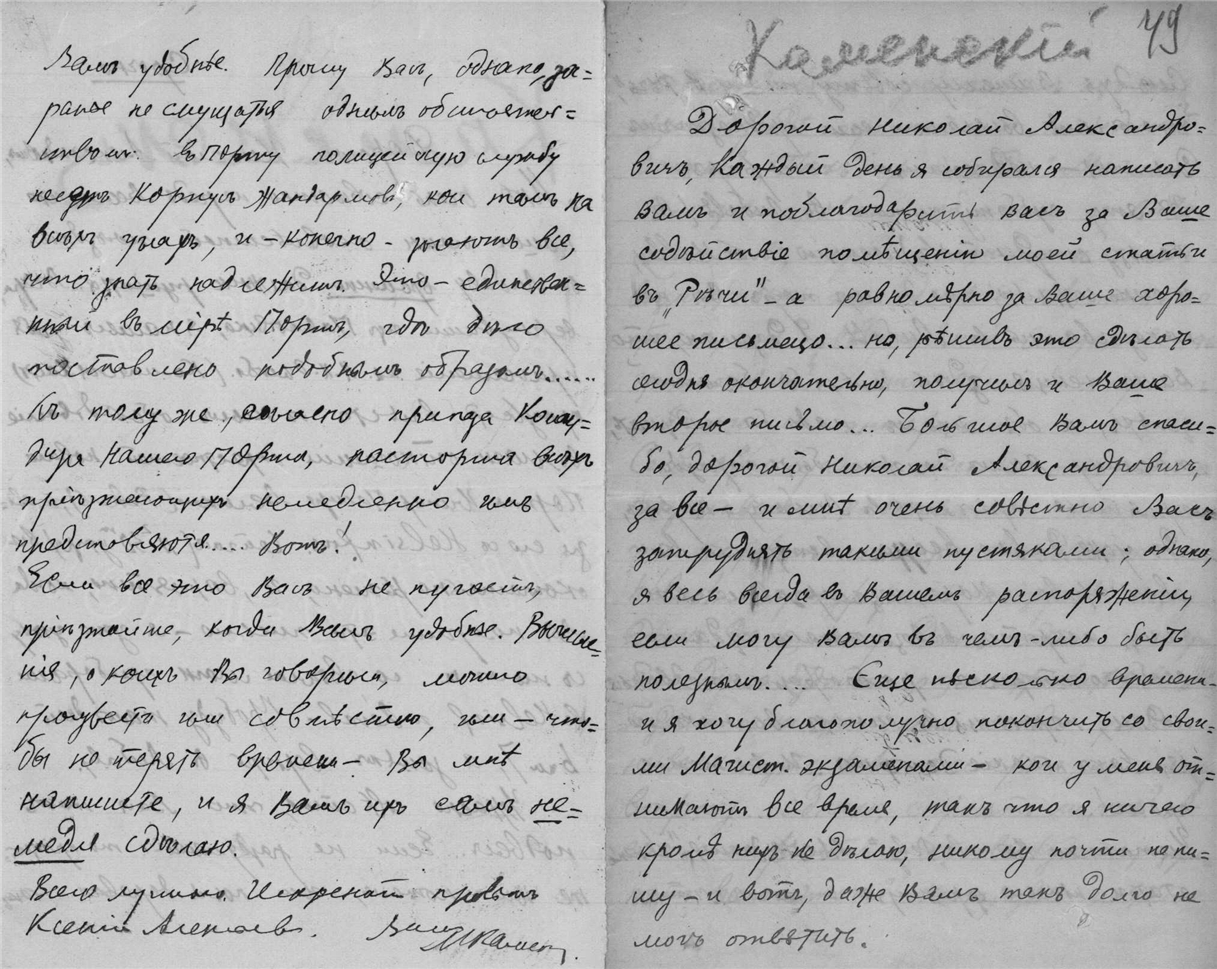 Каменскій 49
Дорогой Николай Алексадро=
вичъ, каждый день я собирался написать
Вамъ и поблагодарить Васъ за Ваше
содѣйствіе помѣщенію моей статьи
въ „Рѣчи" – а равномѣрно за Ваше хоро=
шее письмецо... но, рѣшивъ это сдѣлать
сегодня окончательно, получилъ и Ваше
второе письмо... Большое Вамъ спаси=
бо, дорогой Николай Александровичъ,
за все – и мнѣ очень совѣстно Васъ
затруднять такими пустяками; однако,
я весь всегда въ Вашемъ распоряженіи,
если могу Вамъ въ чемъ-либо быть
полезнымъ.... Еще нѣсколько времени –
и я хочу благополучно покончить со свои=
ми Магист. экзаменами – кои у меня от=
нимаютъ все время, такъ что я ничего
кромѣ нихъ не дѣлаю, никому почти не пи=
шу – и вотъ, даже Вамъ такъ долго не
могъ отвѣтить.
Вамъ удобнѣе. Прошу Васъ, однако, за=
ранѣе не смущаться однимъ обстоятель=
ствомъ: въ Порту полицейскую службу
несетъ Корпусъ Жандармовъ, кои тамъ на
всѣхъ углахъ, и – конечно – знаютъ все,
что знать надлежитъ. Это – единствен=
ный въ мірѣ Портъ, гдѣ дѣло
поставлено подобнымъ образомъ......
Къ тому же, согласно приказа Коман=
дира нашего Порта, паспорта всѣхъ
пріѣзжающихъ немедленно имъ
представляются.... Вотъ!
Если все это Васъ не пугаетъ,
пріѣзжайте, когда Вамъ удобнѣе. Вычисле=
нія, о коихъ Вы говорили, можно
произвести или совмѣстно, или – что=
бы не терять времени – Вы мнѣ
напишите, и я Вамъ ихъ самъ не=
медля сдѣлаю.
Всего лучшаго. Искренній привѣтъ
Ксеніи Алексѣевнѣ. Вашъ